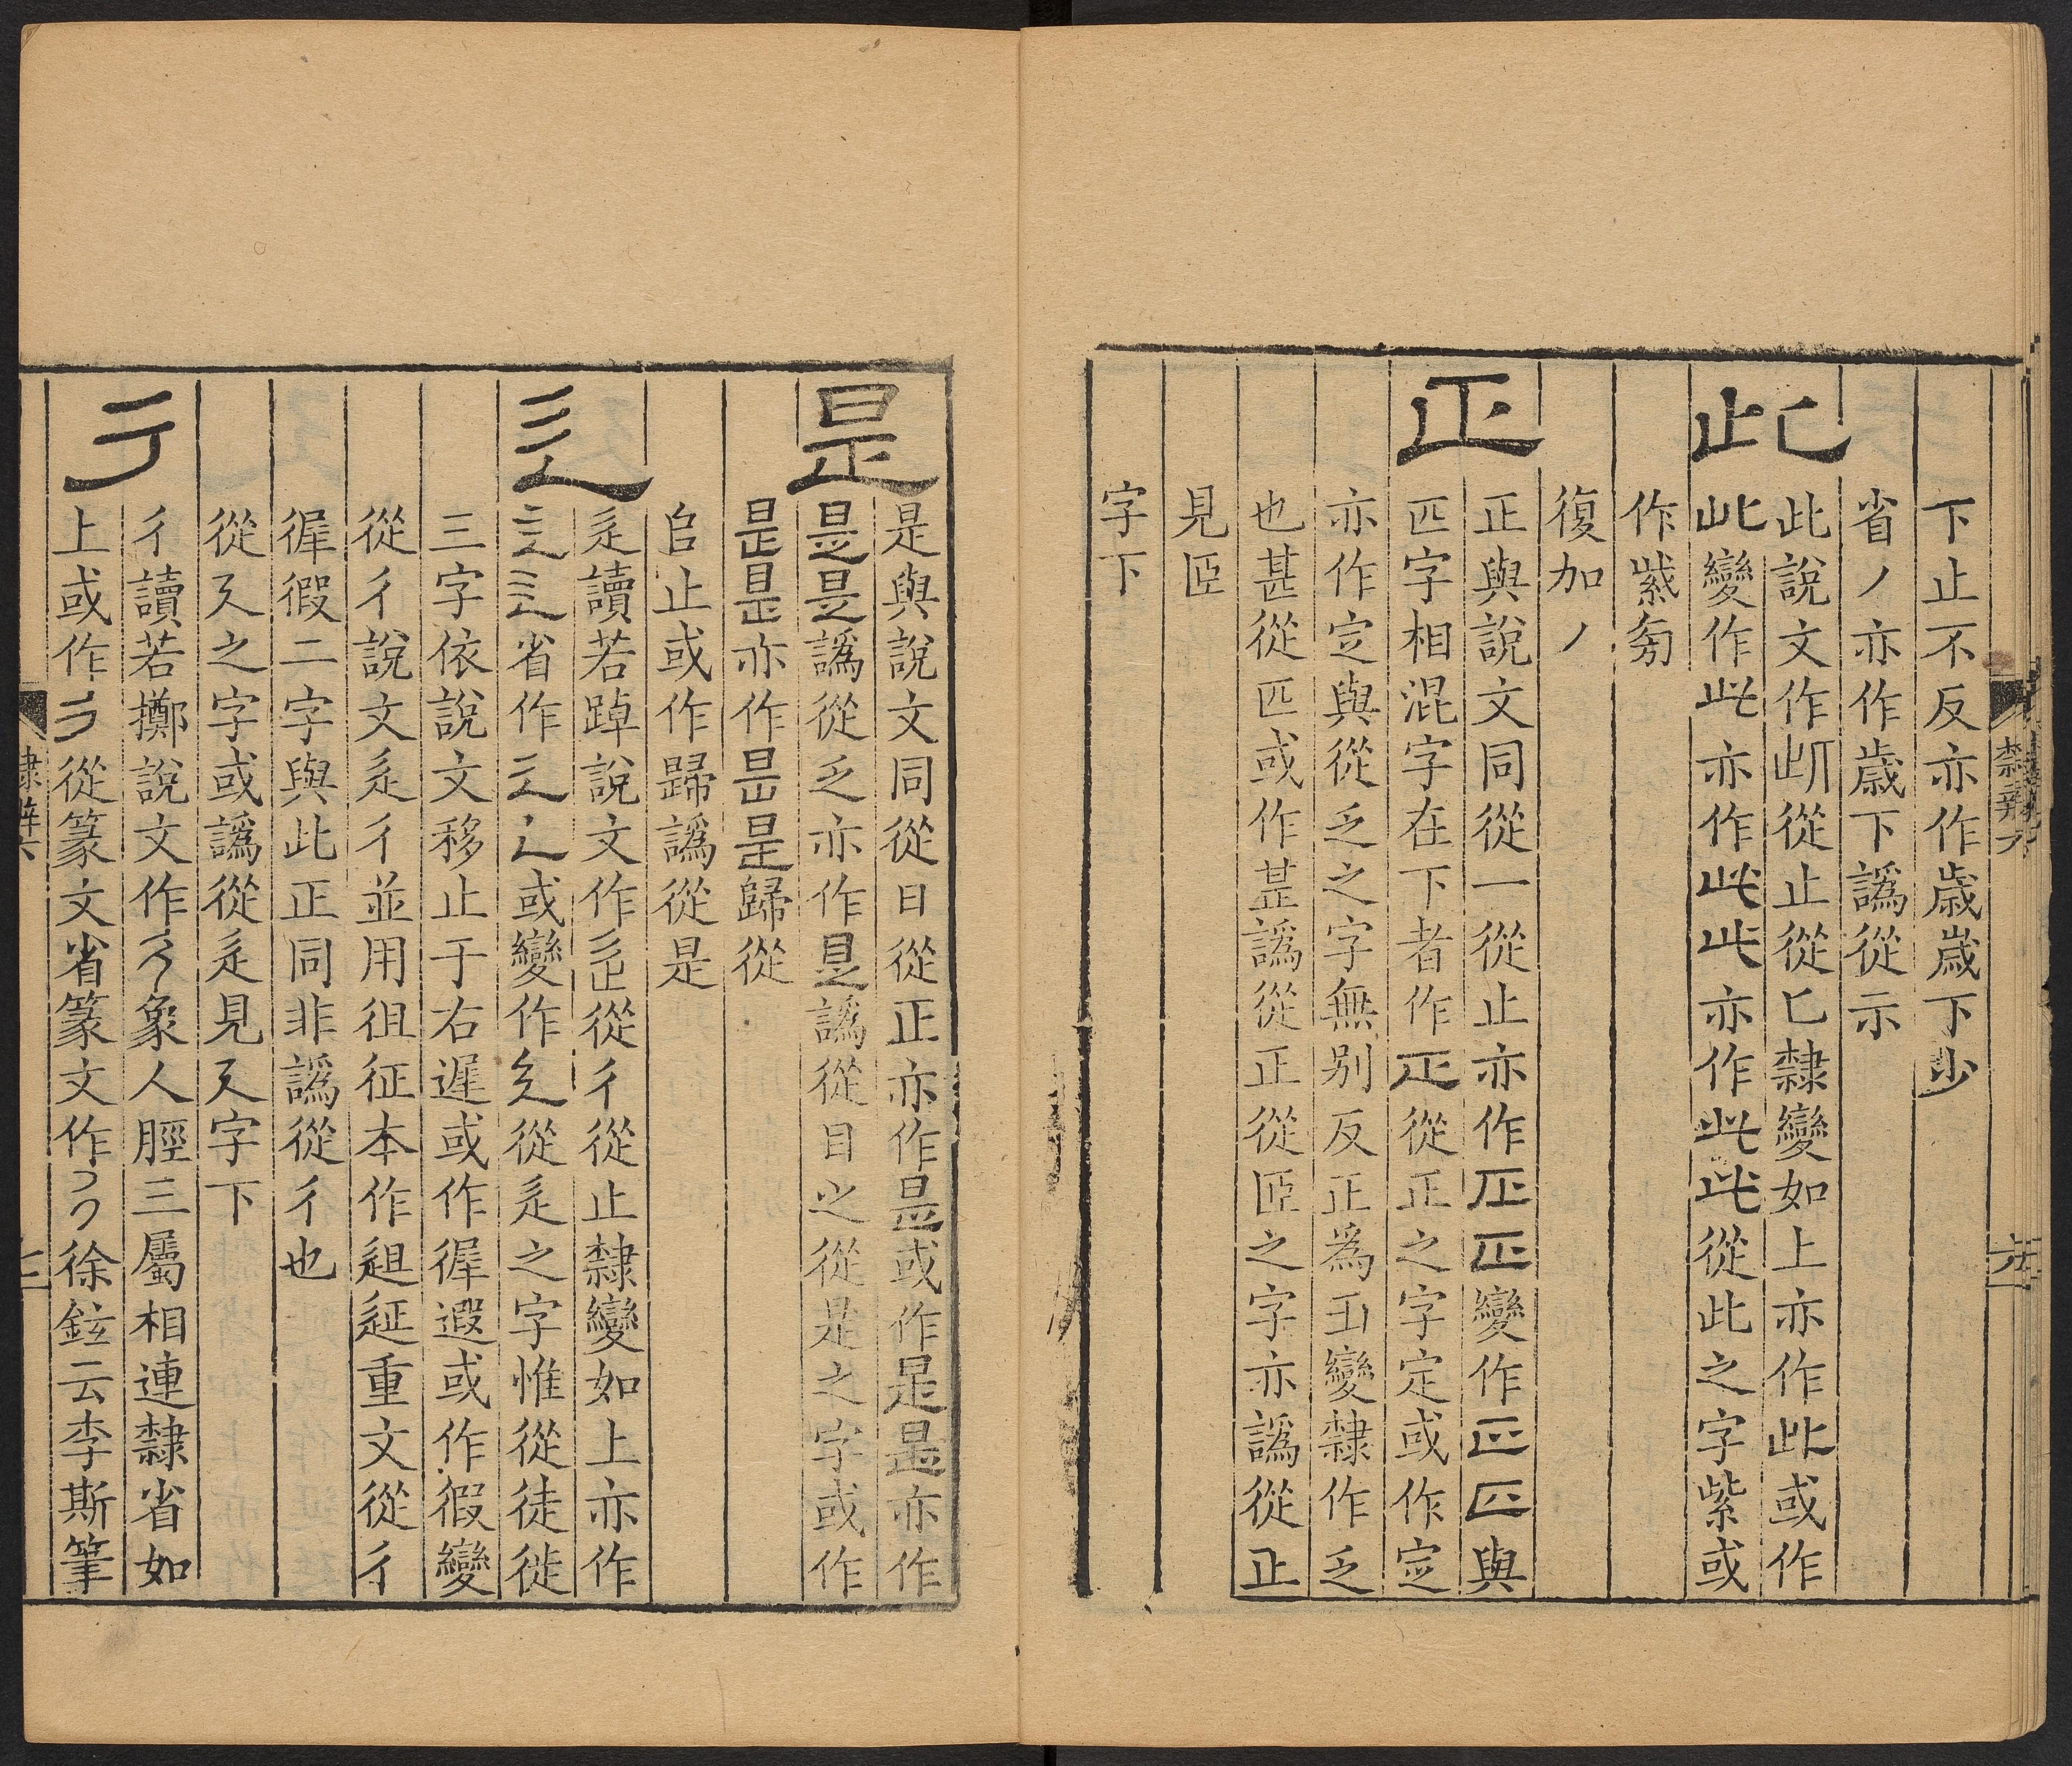 下止不反亦作歳歲下少
省丿亦作歳下譌從示
此
此說文作𣥂從止從匕隸變如上亦作此或作
此變作亦作亦作從此之字紫或
作紫芻
復加丿
正
正與說文同從一從止亦作變作與
匹字相混字在下者作正從正之字定或作㝎
亦作㝎與從乏之字無別反正為𤴓變隸作乏
也甚從匹或作甚譌從正從匹之字亦譌從正
見匹
字下
隸辨六
是
是與說文同從日從正亦作昰或作是昰亦作
是是譌從乏亦作譌從目之從是之字或作
昰昰亦作是歸從
𠂤止或作歸譌從是
辵
辵讀若踔說文作辵從彳從止隸變如上亦作
省作或變作從辵之字惟從徒徙
三字依說文移止于右遲或作徲遐或作徦變
從彳說文辵彳並用徂征本作䢐𨒌重文從彳
徲徦二字與此正同非譌從彳也
從廴之字或譌從辵見廴字下
彳
彳讀若擲說文作彳象人脛三屬相連隸省如
上或作從篆文省篆文作徐鉉云李斯筆
隸辨六